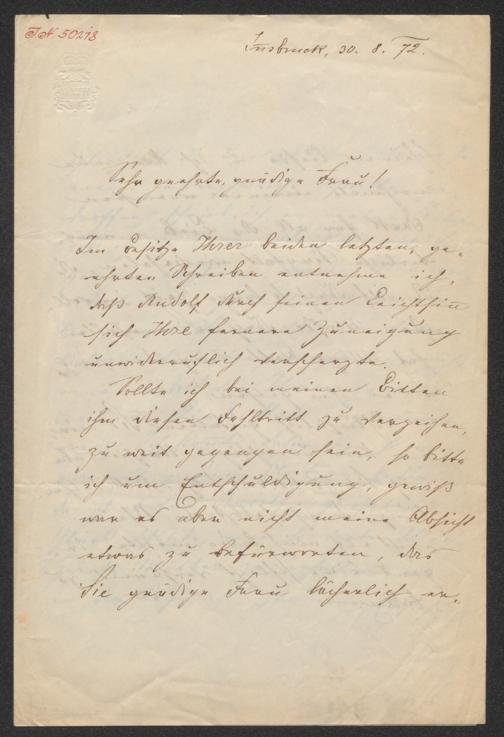 I.N. 50278
Insbruck, 30. 8. 72.
Sehr geehrte, gnädige Frau!
Im Besitze Ihrer beiden letzten, ge-
ehrten Schreiben entnehme ich,
daß Rudolf durch seinen Leichtsinn
sich Ihre fernere Zuneigung
unwiderruflich verscherzte.
Sollte ich bei meinen Bitten
ihm diesen Fehltritt zu verzeihen,
zu weit gegangen sein, so bitte
ich um Entschuldigung, gewiß
war es aber nicht meine Absicht
etwas zu befürworten, das
Sie gnädige Frau lächerlich er-